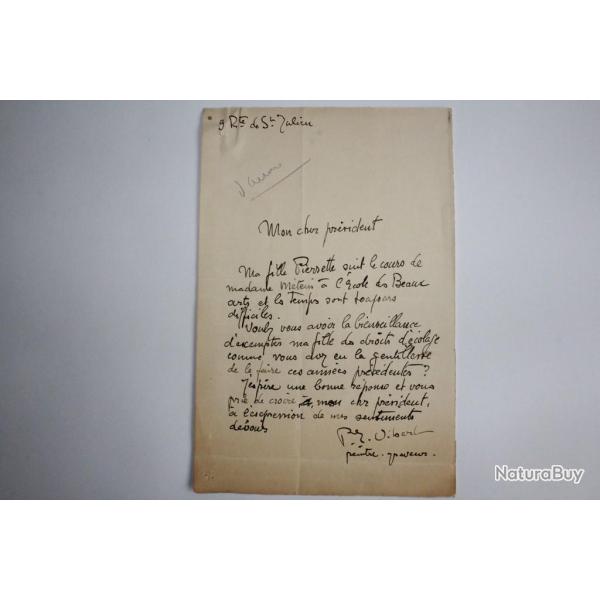 9 Rte de St Julien
Mon cher président
Ma fille Pierrette suit le cours de
madame Méten à l'École des Beaux
arts et les temps sont toujours
difficiles.
Voulez vous avoir la bienveillance
d'exempter ma fille des droits d'écolage
comme vous avez eu la gentillesse
de le faire ces années précédentes ?
J'espère une bonne réponse et vous
prie de croire mon cher président,
à l'expression de mes sentiments
dévoués
P. E. Vibert
peintre-graveur.
NaturaBuy